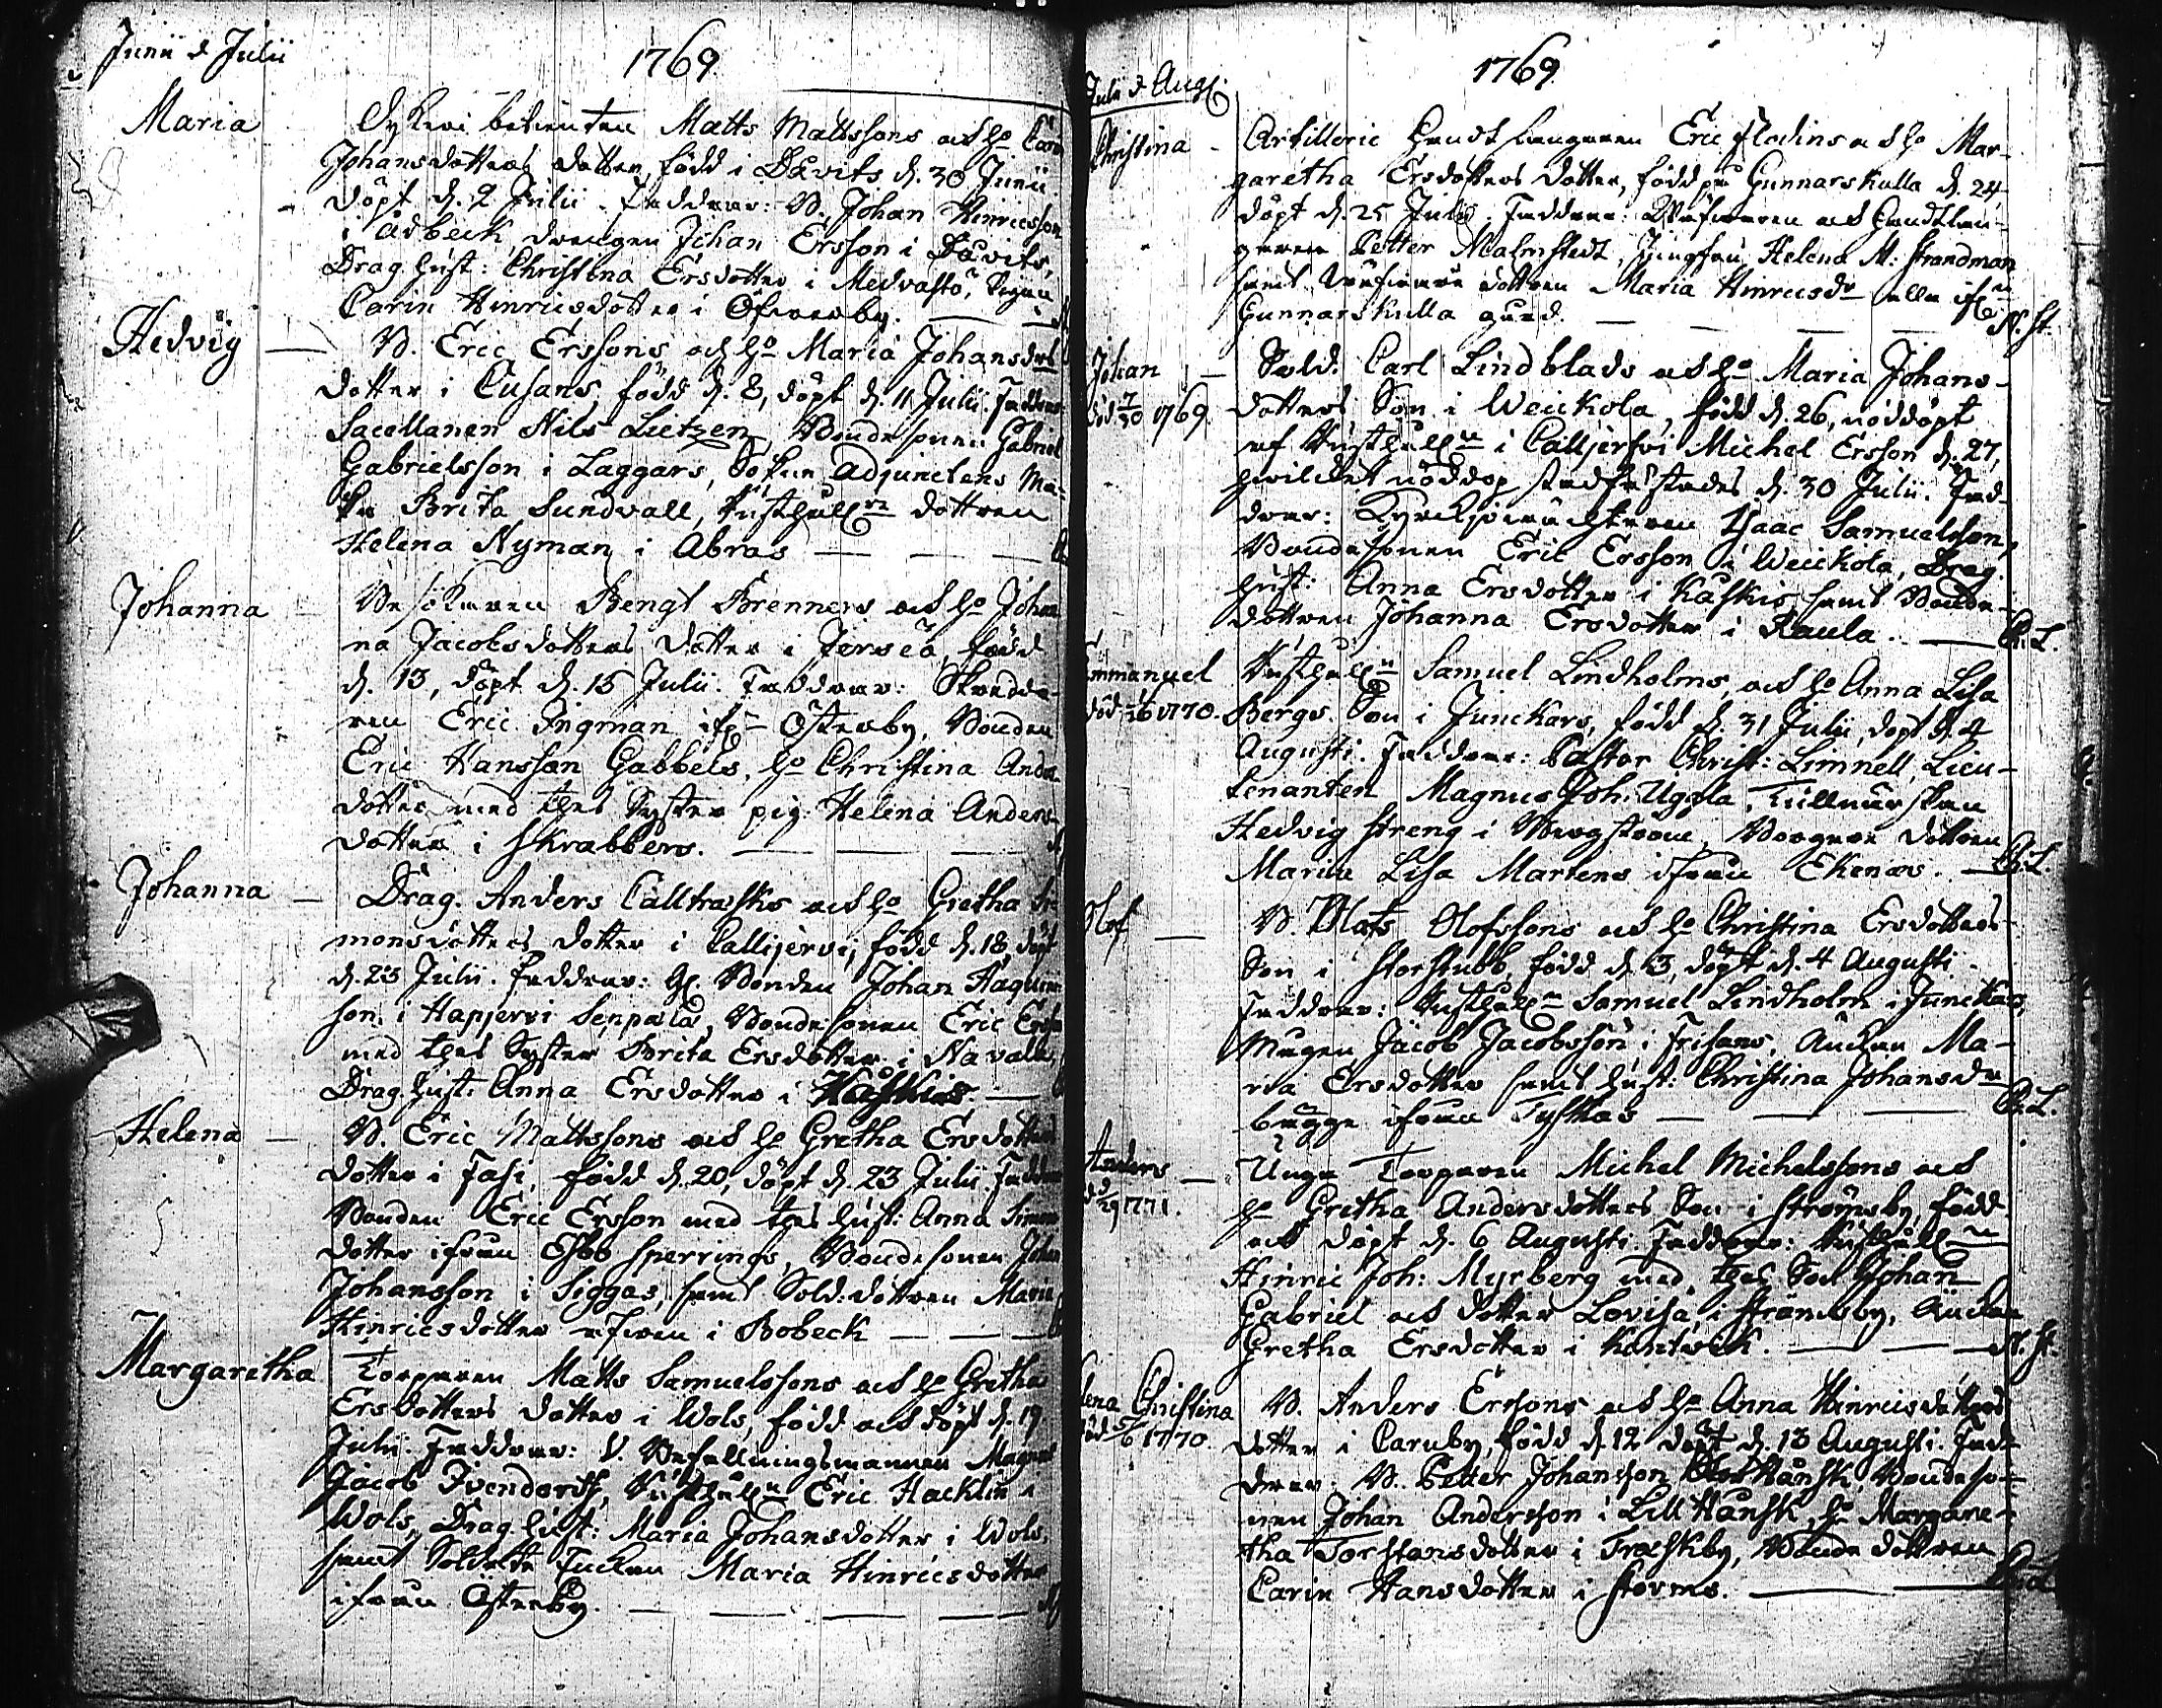 Junii & Julii
1769
Maria
Matts Mattssons och ho
Johansdotters dotter, född i Davits d. 30 Junii
döpt d. 2 Julii. Faddrar: B. Johan Hinricsson
i Adbeck, drengen Johan Ersson i Davits,
Drag. hust: Christina Ersdotter i Medvastö, pigan
Carin Hinricsdotter i Öfverby.
Hedvig
B. Eric Erssons och ho Maria Johansdrs
dotter i Cusans, född d. 8, döpt d. 11 Julii. Faddrar
Sacellanen Nils Lietzen, Bondesonen Gabriel
Gabrielsson i Laggars, Sokne Adjunctens Ma-
ka Brita Sundvall, Rusthåll dottren
Helena Nyman i Abras
Johanna
Besökaren Bengt Brenners och ho Johan
na Jacobsdotters dotter i Jerseå, född
d. 13, döpt d. 15 Julii. Faddrar: Skredda-
ren Eric Ingman ifr Österby, Bonden
Eric Hansson Gabbels, ho Christina Anders
dotter med thes Syster pig: Helena Anders-
dotter i Skrabbers.
Johanna
Drag. Anders Calltrasks och ho Gretha Si-
monsdotters dotter i Callijervi, född d. 18, döpt
d. 23 Julii. Faddrar: Gl. Bonden Johan Haquin
son i Hapjervi Senpala, Bondesonen Eric Ersson
med thes Syster Brita Ersdotter i Navala,
Drag. hust: Anna Ersdotter i Kaskis.
Helena
B. Eric Mattssons och ho Gretha Ersdotters
dotter i Fasi, född d. 20, döpt d. 23 Julii. Faddrar
Bonden Eric Ersson med thes hust: Anna Simons
dotter ifrån Esbo Sperrings, Bondesonen Johan
Johansson i Siggas, samt Sold: dottren Maria
Hinricsdotter i Bobeck
Margaretha
Torparen Matts Samuelssons och ho Gretha
Ersdotters dotter i Wols, född och döpt d. 19
Julii. Faddrar: V. Befallningsmannen Magnus
Jacob Ivendorff, Rusthåll Eric Hacklin i
Wols, Drag. hust: Maria Johansdotter i Wols,
samt Soldate Enckan Maria Hinricsdotter
ifrån Österby.
1769
Julii & Aug:
Christina
Artillerie Handtlangaren Eric Flodins och ho Mar-
garetha Ersdotters dotter, född på Gunnarskulla d. 24,
döpt d. 25 Julii. Faddrar: och Handtlan-
garen Petter Malmstedt, Jungfru Helena M: Strandman
samt dottren Maria Hinricsdr alla ifr
Gunnarskulla gård. N. St.
Johan
död 7/10 1769
Sold. Carl Lindblads och ho Maria Johans-
dotters Son i Weickola, född d. 26, nöddöpt
af Rusthåll i Calljervi Michel Ersson d. 27,
hvilcket nöddop stadfästades d. 30 Julii. Fad-
drar: Isaac Samuelsson,
Bondesonen Eric Ersson i Weickola, Drag.
hust: Anna Ersdotter i Kaskis samt Bonde-
dottren Johanna Ersdotter i Kaula. C. L.
Emmanuel
död 1770.
Rusthåll Samuel Lindholms, och ho Anna Lisa
Bergs Son i Junckars, född d. 31 Julii, döpt d. 4
Augusti. Faddrar: Pastor Christ: Limnell, Lieu-
tenanten Magnus Joh: Uggla,
Hedvig Streng i Bergstrom, Borgare dottren
Maria Lisa Martens ifrån Ekenäs. C. L.
Olof
B. Mats Olofssons och ho Christina Ersdotters
Son i Storstubb, född d. 3, döpt d. 4 Augusti
Faddrar: Rusthåll Samuel Lindholm i Junckars,
Mågen Jacob Jacobsson i Frisans, Enckan Ma-
ria Ersdotter samt hust: Christina Johansdr
bägge ifrån Tyskas C. L.
Anders
1771.
Unga Torparen Michel Michelssons och
ho Gretha Andersdotters Son i Strömsby, född
och döpt d. 6 Augusti. Faddrar: Rusthåll
Hinric Joh: Myrberg med thes Son Johan
Gabriel och dotter Lovisa i Strömsby, Enckan
Gretha Ersdotter i Kantvik. N. St.
Lena Christina
död 5/6 1770.
B. Anders Erssons och ho Anna Hinricsdotters
dotter i Caruby, född d. 12 döpt d. 13 Augusti. Fad-
drar: B. Petter Johansson Stor Hansk, Bondeso-
nen Johan Andersson i Lill Hansk, ho Margare-
tha Torstansdotter i Fraskby, Bonde dottren
Carin Hansdotter i Storms. C. L.